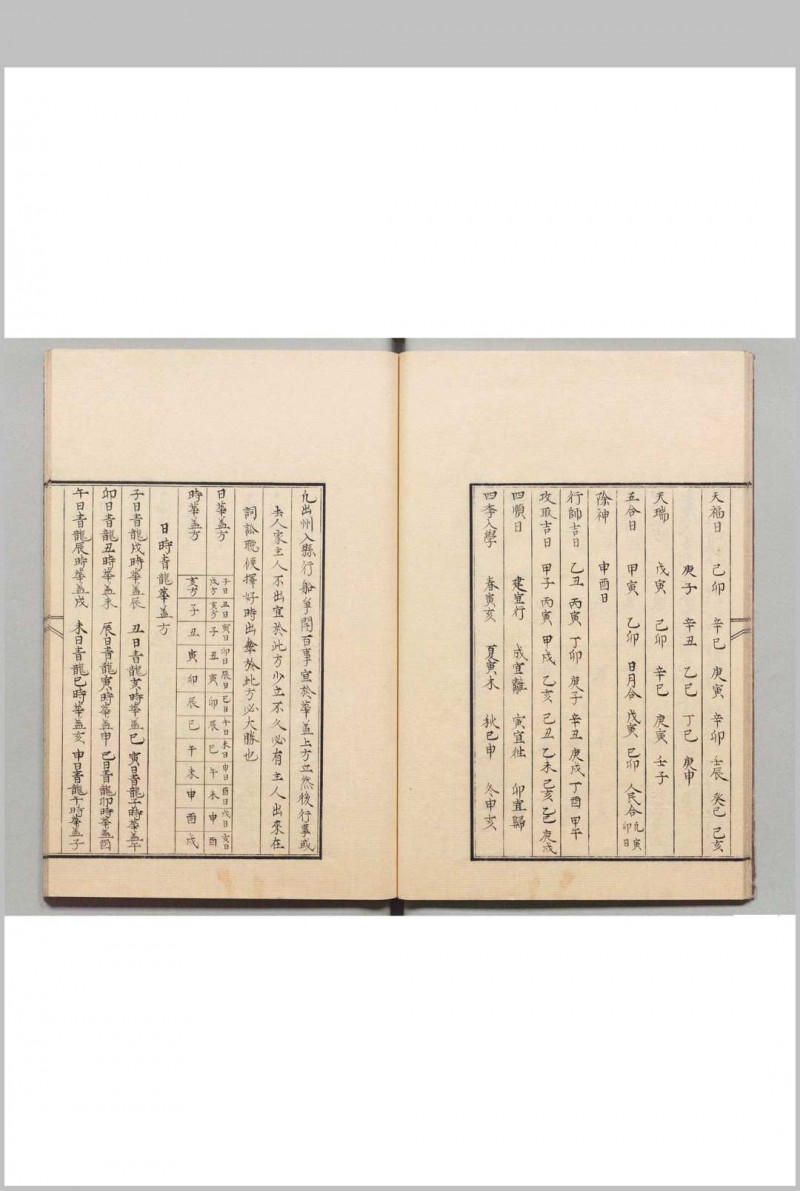 天福日 己卯 辛巳 庚寅 辛卯 壬辰 癸巳 己亥
庚子 辛丑 乙巳 丁巳 庚申
天瑞 戊寅 己卯 辛巳 庚寅 壬子
五合日 甲寅 乙卯 日月合 戊寅 己卯 人民合 凢寅卯日
除神 申酉日
行師吉日 乙丑 丙寅 丁卯 庚子 辛丑 庚戌 丁酉 甲午
攻取吉日 甲子 丙寅 甲戌 乙亥 己丑 乙未 己亥 乙巳 庚戌
四順日 建宜行 成宜離 寅宜徃 卯宜歸
四季入學 春寅亥 夏寅未 秋巳申 冬申亥
凢出州入縣行船爭鬧百事宜於華盖上方立然後行事或
去人家主人不出宜於此方少立不久必有主人出來在
詞訟聽候擇好時出於此方必大勝也
子日 丑日 寅日 卯日 辰日 巳日 午日 未日 申日 酉日 戌日 亥日
日華盖方 戌方 亥方 子 丑 寅 卯 辰 巳 午 未 申 酉
時華盖方 亥方 子 丑 寅 卯 辰 巳 午 未 申 酉 戌
日時青龍華盖方
子日青龍戌時華盖辰 丑日青龍亥時華盖巳 寅日青龍子時華盖午
卯日青龍丑時華盖未 辰日青龍寅時華盖申 巳日青龍卯時華盖酉
午日青龍辰時華盖戌 未日青龍巳時華盖亥 申日青龍午時華盖子